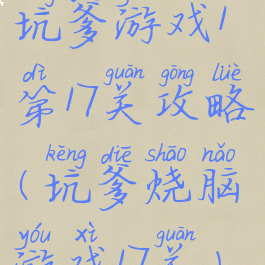 坑爹游戏1
dì guān gōng lüè
第17关攻略
kēng diē shāo nǎo
(坑爹烧脑
yóu xì guān
游戏17关)